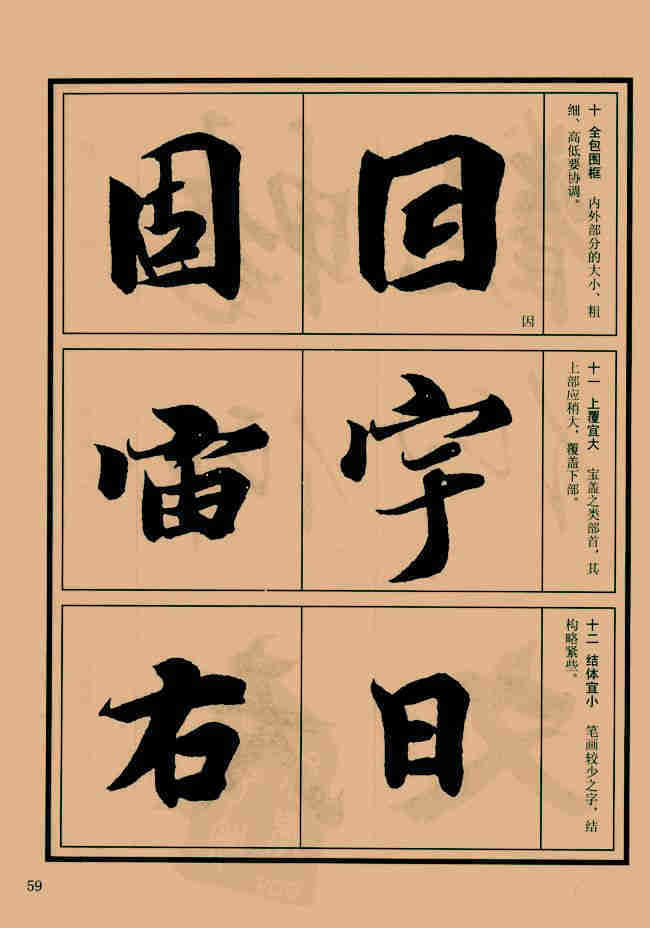 十　全包围框　内外部分的大小、粗
细、高低要协调。
囙
因
固
十一　上覆宜大　宝盖之类部首，其
上部应稍大，覆盖下部。
宇
宙
十二　结体宜小　笔画较少之字，结
构略紧些。
日
右
59